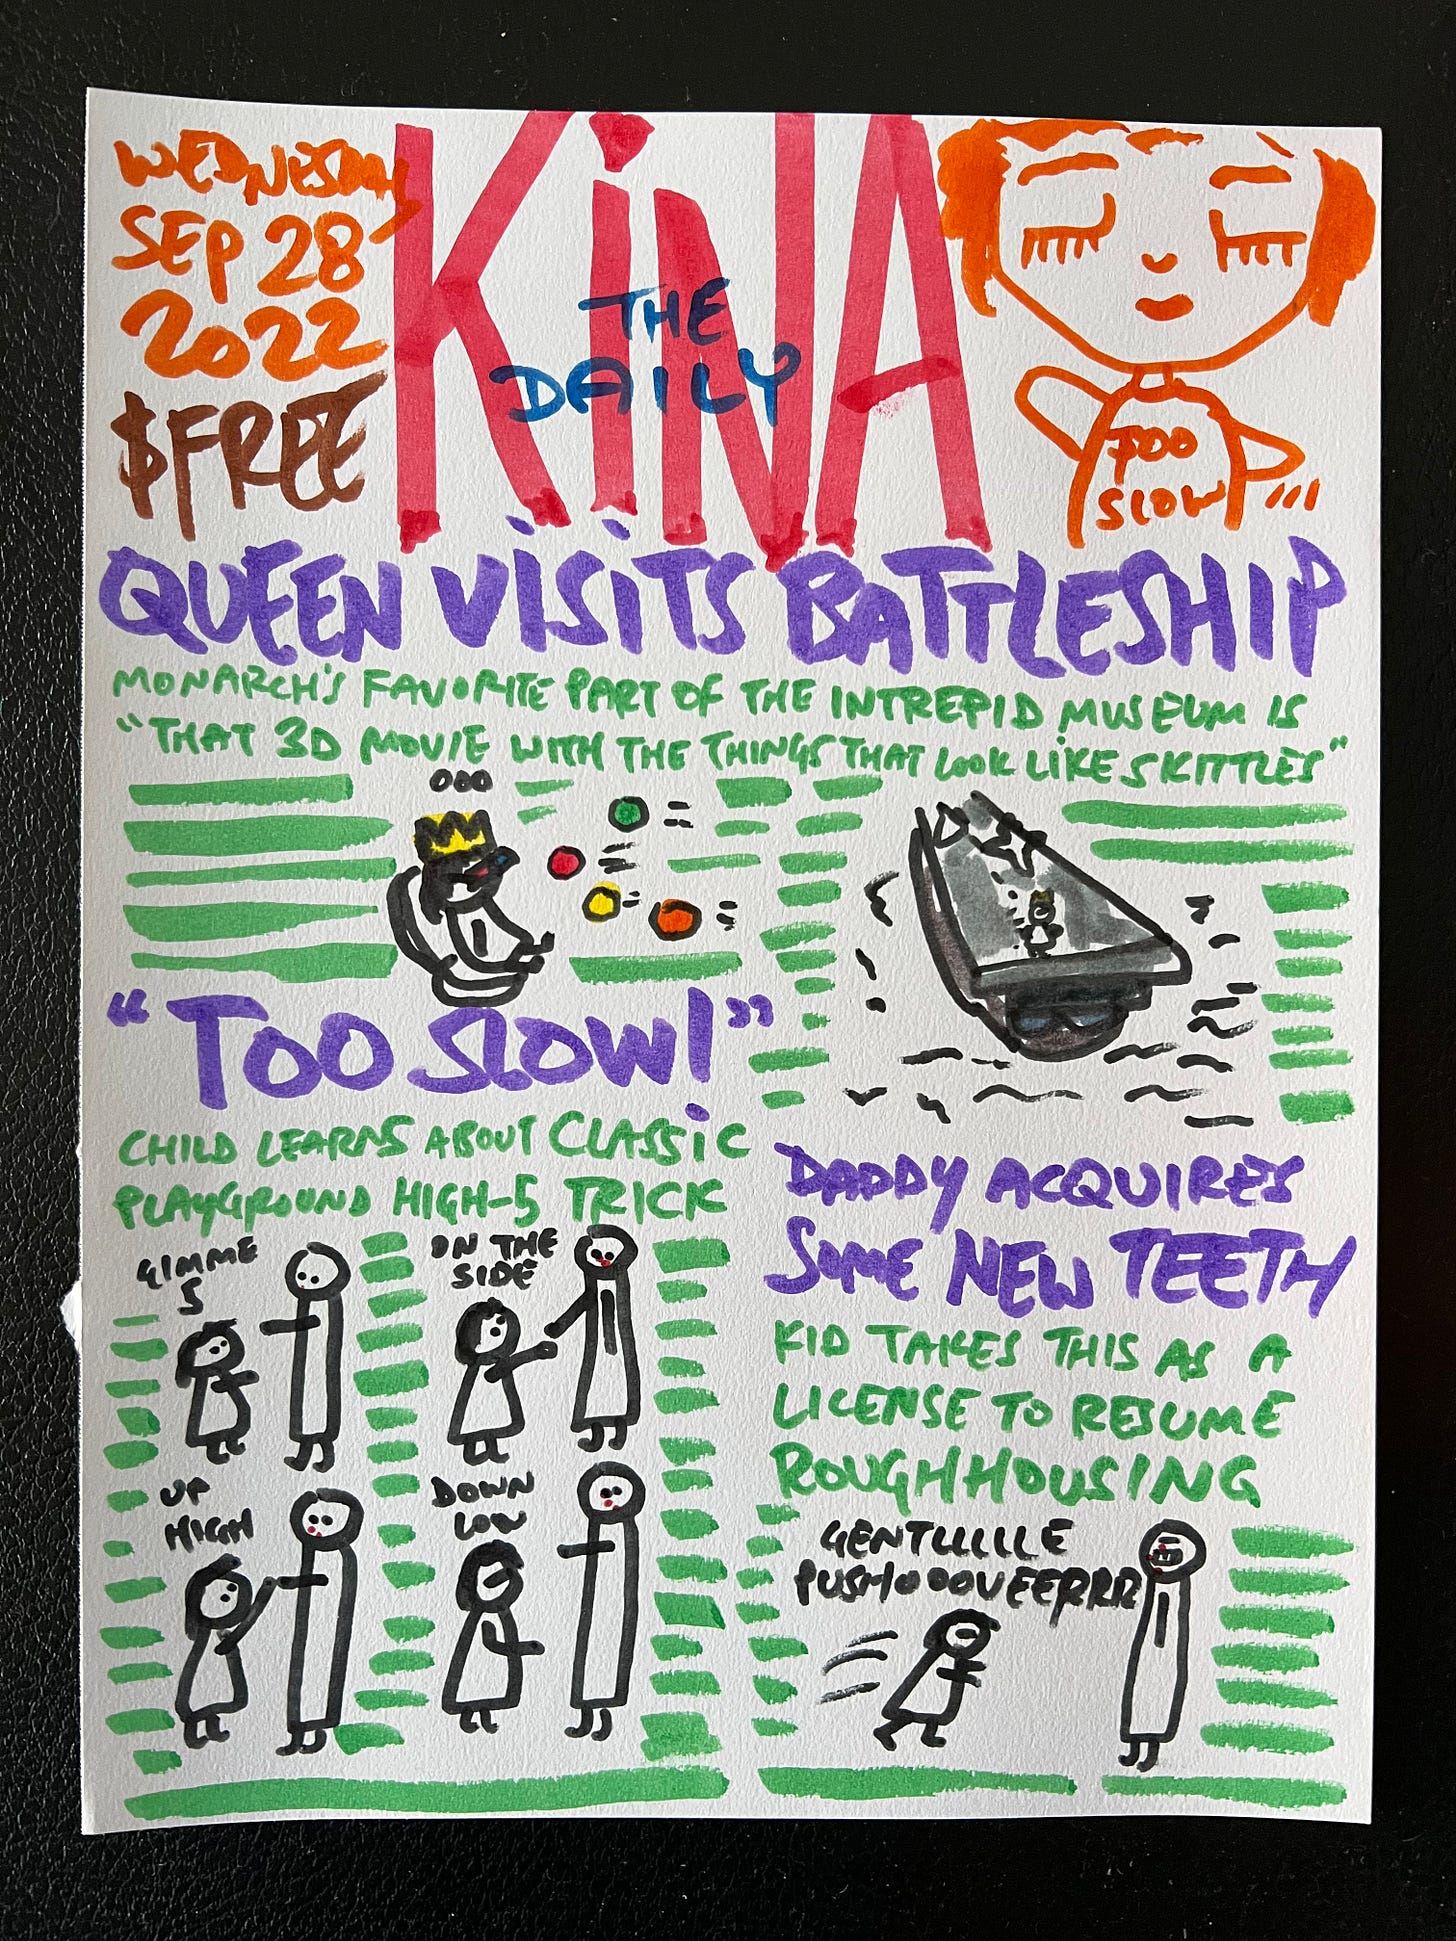 WEDNESDAY
SEP 28
2022
$FREE
KiNA
THE
DAILY
TOO
SLOW
QUEEN ViSiTS BATTLESHIP
MONARCH'S FAVORITE PART OF THE INTREPID MUSEUM IS
"THAT 3D MOVIE WITH THE THINGS THAT LOOK LIKE SKITTLES"
"TOO SLOW!"
CHILD LEARNS ABOUT CLASSiC
PLAYGROUND HIGH-5 TRICK
GIMME
5
ON THE
SIDE
UP
HIGH
DOWN
LOW
DADDY ACQUIRES
SOME NEW TEETH
KID TAKES THIS AS A
LICENSE TO RESUME
ROUGHHOUSING
GENTLLLLLE
PUSHOOOVEERRRR